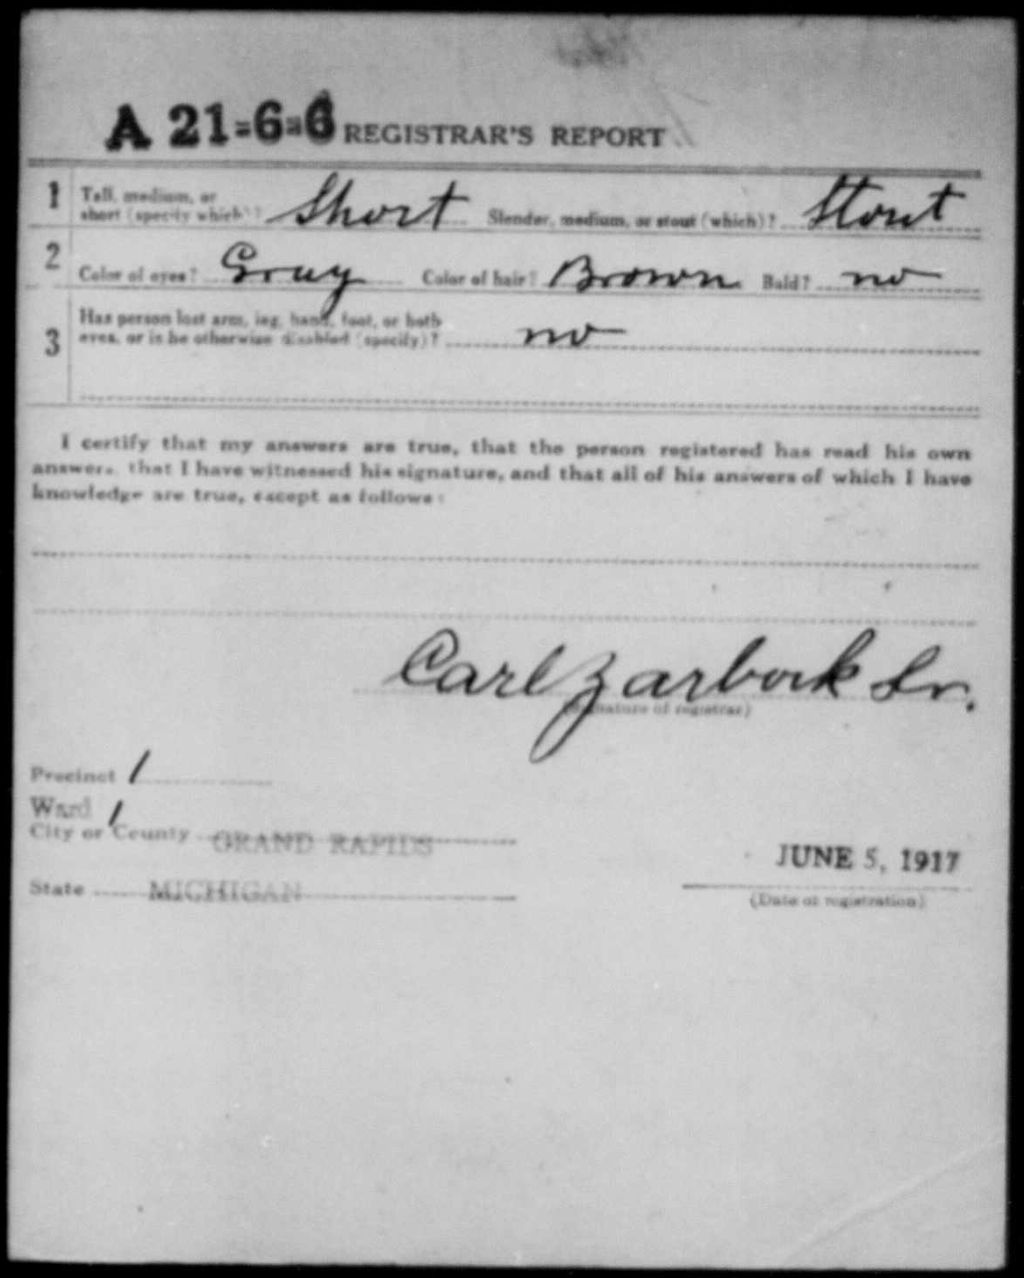 A 21=6=6 REGISTRAR'S REPORT
1 Tall, medium, or short (specify which)? Short Slender, medium, or stout (which)? Stout
2 Color of eyes? Gray Color of hair? Brown Bald? no
3 Has person lost arm, leg, hand, foot, or both
eyes, or is he otherwise disabled (specify)? no
I certify that my answers are true, that the person registered has read his own
answers, that I have witnessed his signature, and that all of his answers of which I have
knowledge are true, except as follows:
Carl Zarbock Sr.
(Signature of registrar)
Precinct 1
Ward 1
City or County GRAND RAPIDS
State MICHIGAN
JUNE 5, 1917
(Date of registration)